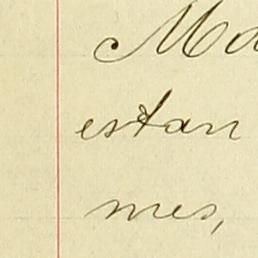 Ma
estan
mes,